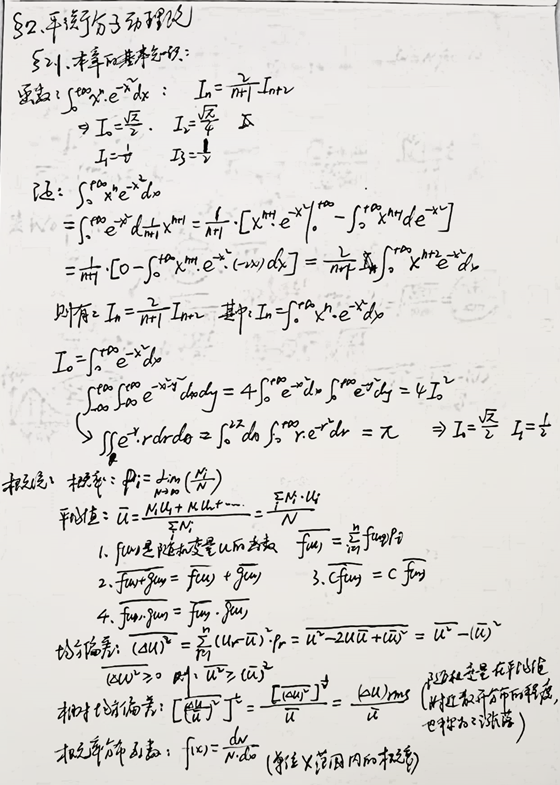 §2.平衡分子动理论
§2.1.本章的基本知识:
函数: ∫₀^{+∞} xⁿ·e^{-x²}dx : Iₙ = 2/(n+1) Iₙ₊₂
⇒ I₀ = √π/2 . I₂ = √π/4
I₁ = 1/2 I₃ = 1/2
证: ∫₀^{+∞} xⁿe^{-x²}dx
= ∫₀^{+∞} e^{-x²} d 1/(n+1) x^{n+1} = 1/(n+1)·[x^{n+1}·e^{-x²}|₀^{+∞} - ∫₀^{+∞} x^{n+1}de^{-x²}]
= 1/(n+1)·[0 - ∫₀^{+∞} x^{n+1}·e^{-x²}·(-2x)dx] = 2/(n+1) ∫₀^{+∞} x^{n+2}e^{-x²}dx
则有: Iₙ = 2/(n+1) Iₙ₊₂ 其中: Iₙ = ∫₀^{+∞} xⁿ·e^{-x²}dx
I₀ = ∫₀^{+∞} e^{-x²}dx
∫_{-∞}^{+∞}∫_{-∞}^{+∞} e^{-x²-y²}dxdy = 4∫₀^{+∞} e^{-x²}dx ∫₀^{+∞} e^{-y²}dy = 4I₀²
↘ ∬e^{-r²}·rdrdθ = ∫₀^{2π}dθ ∫₀^{+∞} r·e^{-r²}dr = π ⇒ I₀ = √π/2 I₁ = 1/2
概统: 概率: Pᵢ = lim_{N→∞}(Nᵢ/N)
平均值: ū = (N₁u₁+N₂u₂+····)/ΣNᵢ = ΣNᵢ·uᵢ/N
1. f(u)是随机变量u的函数 \overline{f(u)} = Σ_{i=1}^{n} f(uᵢ)Pᵢ
2. \overline{f(u)+g(u)} = \overline{f(u)} + \overline{g(u)} 3. \overline{cf(u)} = c \overline{f(u)}
4. \overline{f(u)·g(u)} = \overline{f(u)}·\overline{g(u)}
均方偏差: \overline{(Δu)²} = Σ_{r=1}^{n}(uᵣ-ū)²·Pᵣ = \overline{u²-2uū+(ū)²} = \overline{u²}-(ū)²
\overline{(Δu)²}≥0 则: \overline{u²}≥(ū)²
相对均方偏差: [\overline{(Δu/ū)²}]^{1/2} = [\overline{(Δu)²}]^{1/2}/ū = (Δu)rms/ū (随机变量在平均值
附近散开分布的程度,
也称为涨落)
概率分布函数: f(x) = dN/(N·dx) (单位x范围内的概率)